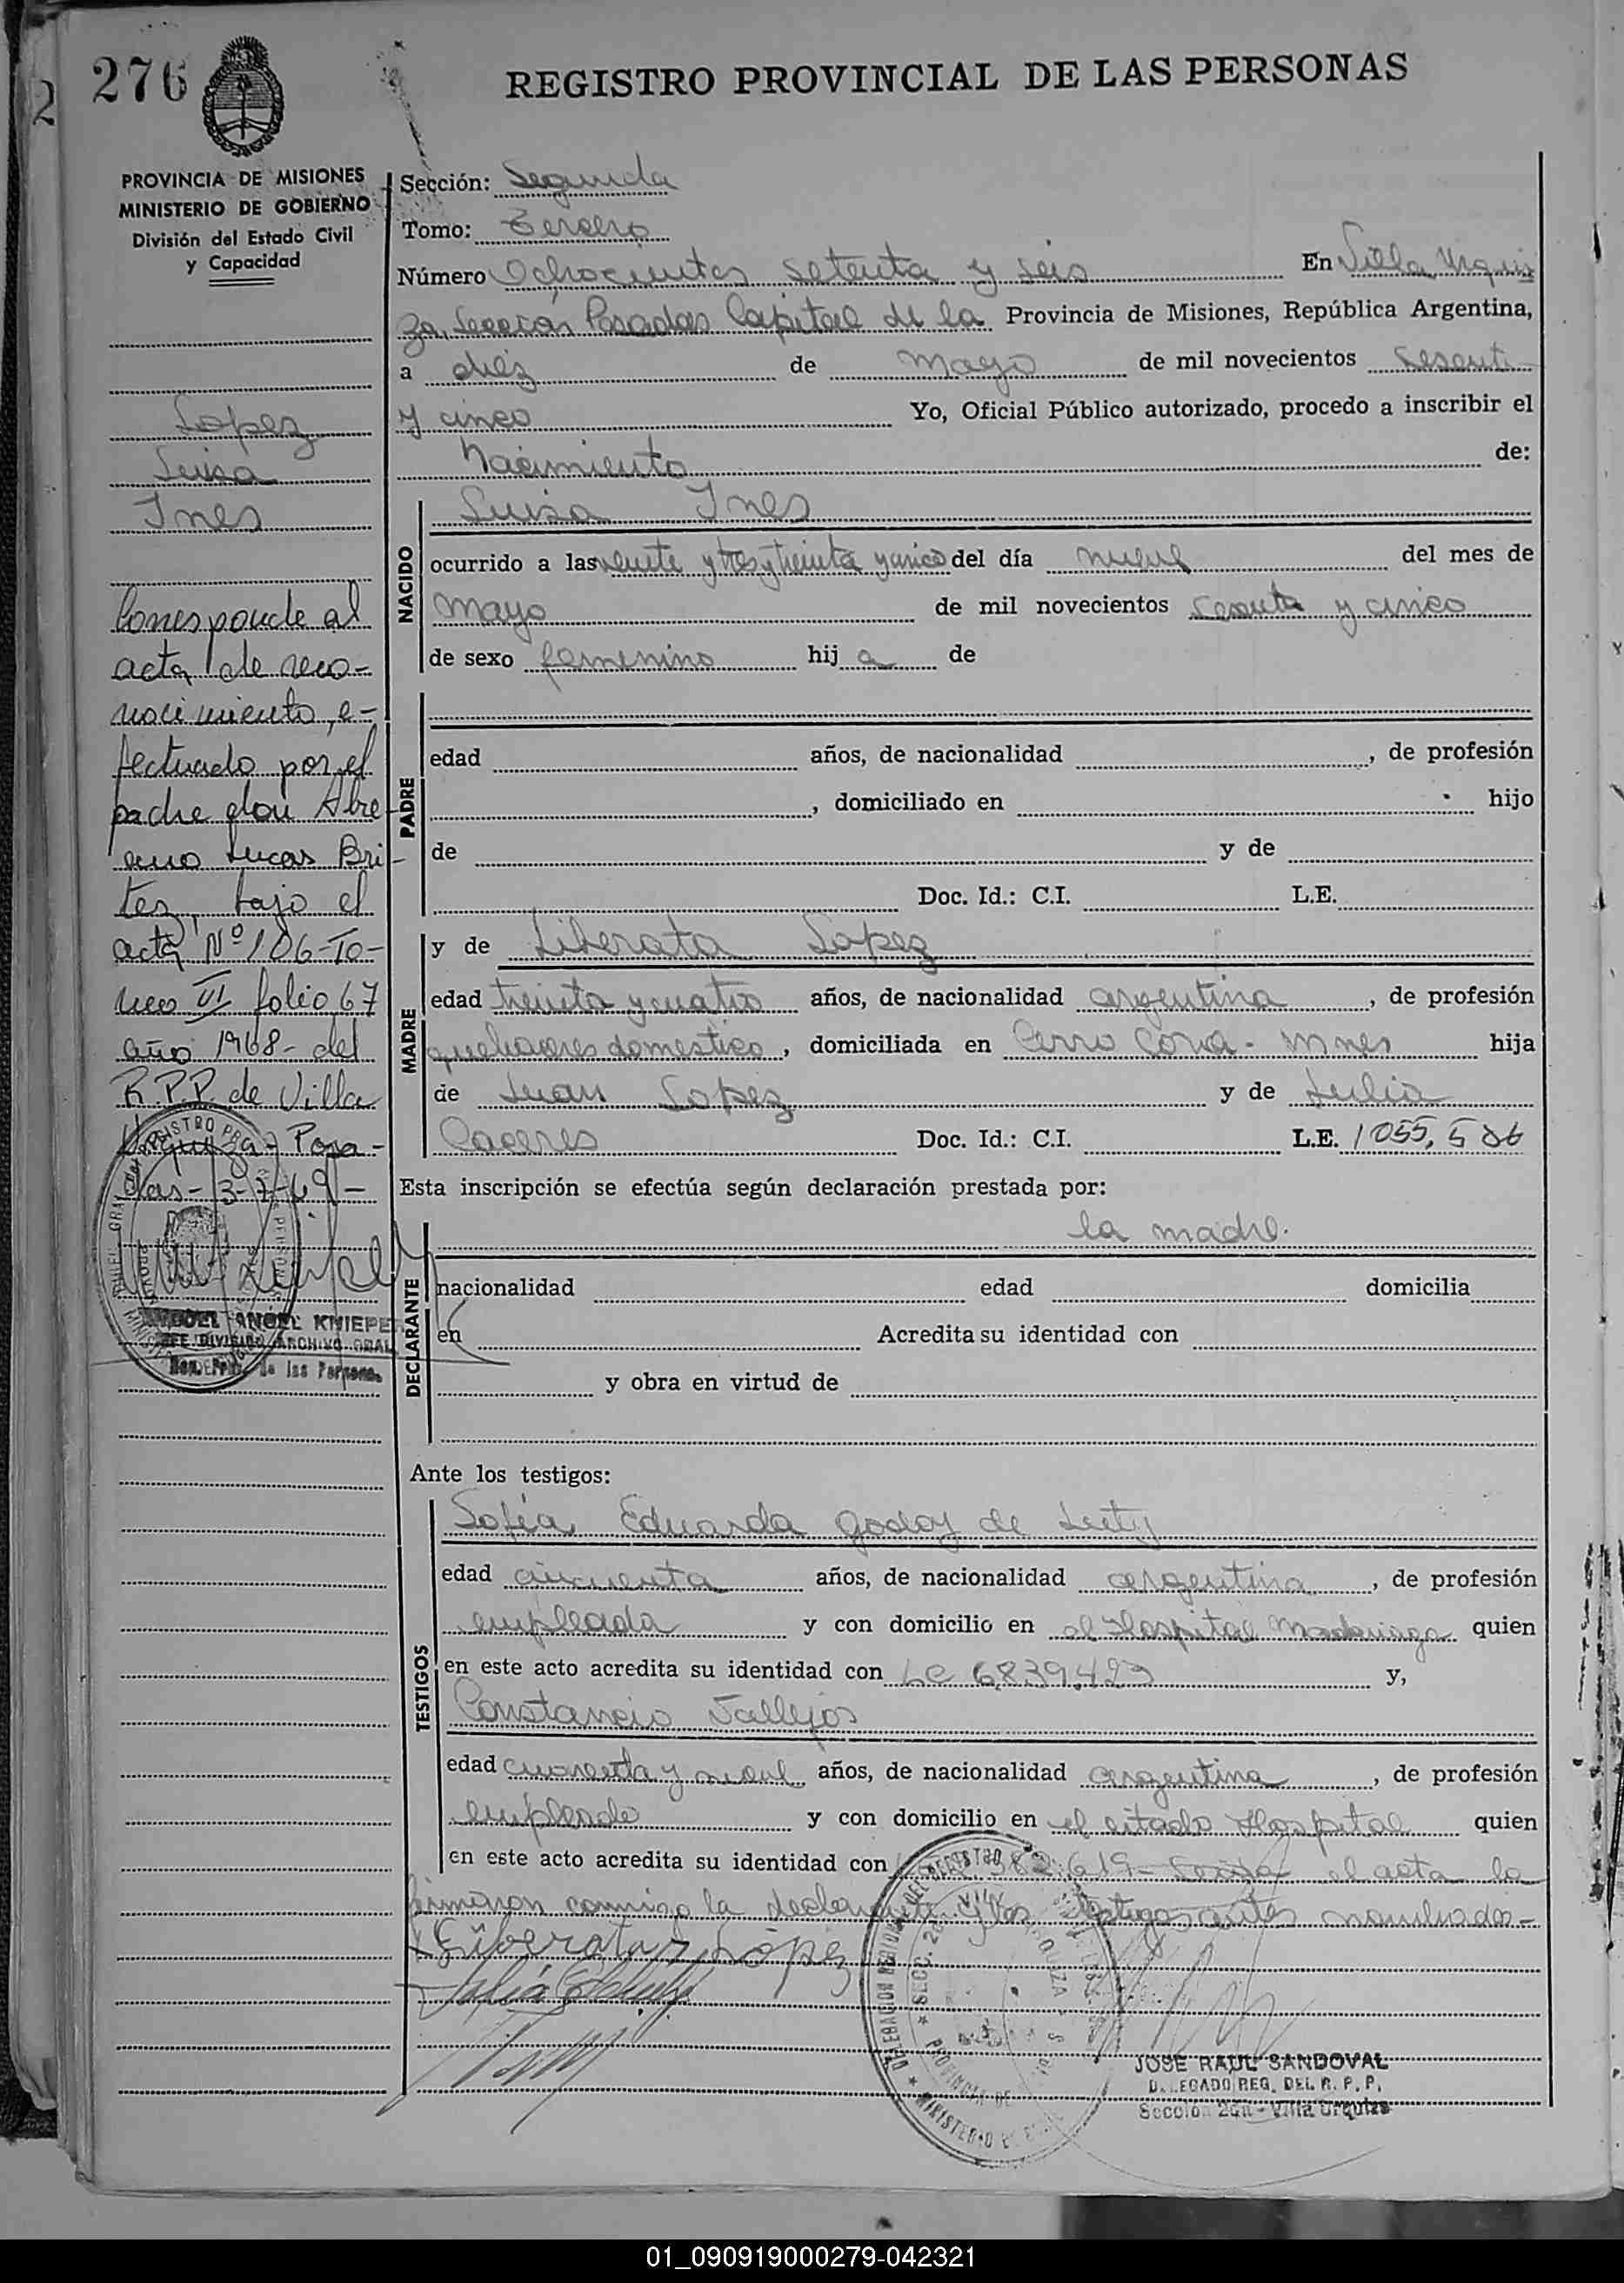 276
REGISTRO PROVINCIAL DE LAS PERSONAS
PROVINCIA DE MISIONES
MINISTERIO DE GOBIERNO
División del Estado Civil
y Capacidad
Lopez
Luisa
Ines
Corresponde al
acta de reco-
nocimiento, e-
fectuado por el
padre don
Lucas Bri-
tez, bajo el
acta Nº 106-To-
mo VI folio 67
año 1968- del
R.P.P. de Villa
Urquiza- Posa-
das- 3-7-69-
MIGUEL ANGEL KNIEPE
JEFE DIVISION ARCHIVO GRAL
Reg. Prov. de las Persona
Sección: Segunda
Tomo: Tercero
Número Ochocientos setenta y seis En Villa Urqui
za, Sección Posadas Capital de la Provincia de Misiones, República Argentina,
a diez de mayo de mil novecientos sesenti
y cinco Yo, Oficial Público autorizado, procedo a inscribir el
Nacimiento de:
NACIDO
Luisa Ines
ocurrido a las veinte y tres y treinta y cinco del día nueve del mes de
mayo de mil novecientos sesenta y cinco
de sexo femenino hij a de
PADRE
edad años, de nacionalidad , de profesión
, domiciliado en hijo
de y de
Doc. Id.: C.I. L.E.
MADRE
y de Liberata Lopez
edad treinta y cuatro años, de nacionalidad argentina , de profesión
quehaceres domestico , domiciliada en Cerro Cora - Mnes hija
de Juan Lopez y de Julia
Caceres Doc. Id.: C.I. L.E. 1055,586
Esta inscripción se efectúa según declaración prestada por:
DECLARANTE
la madre.
nacionalidad edad domicilia
en Acredita su identidad con
y obra en virtud de
Ante los testigos:
TESTIGOS
Sofia Eduarda Godoy de
edad cincuenta años, de nacionalidad argentina , de profesión
empleada y con domicilio en el Hospital Madariaga quien
en este acto acredita su identidad con LC 6839.429 y,
Constancio Vallejos
edad cuarenta y nueve años, de nacionalidad argentina , de profesión
empleado y con domicilio en el citado Hospital quien
en este acto acredita su identidad con 619- el acta la
firmaron conmigo la declarante y los testigos antes nombrados-
Liberata Lopez
JOSE RAUL SANDOVAL
DELEGADO REG. DEL R. P. P.
Sección 2da - Villa Urquiza
01_090919000279-042321